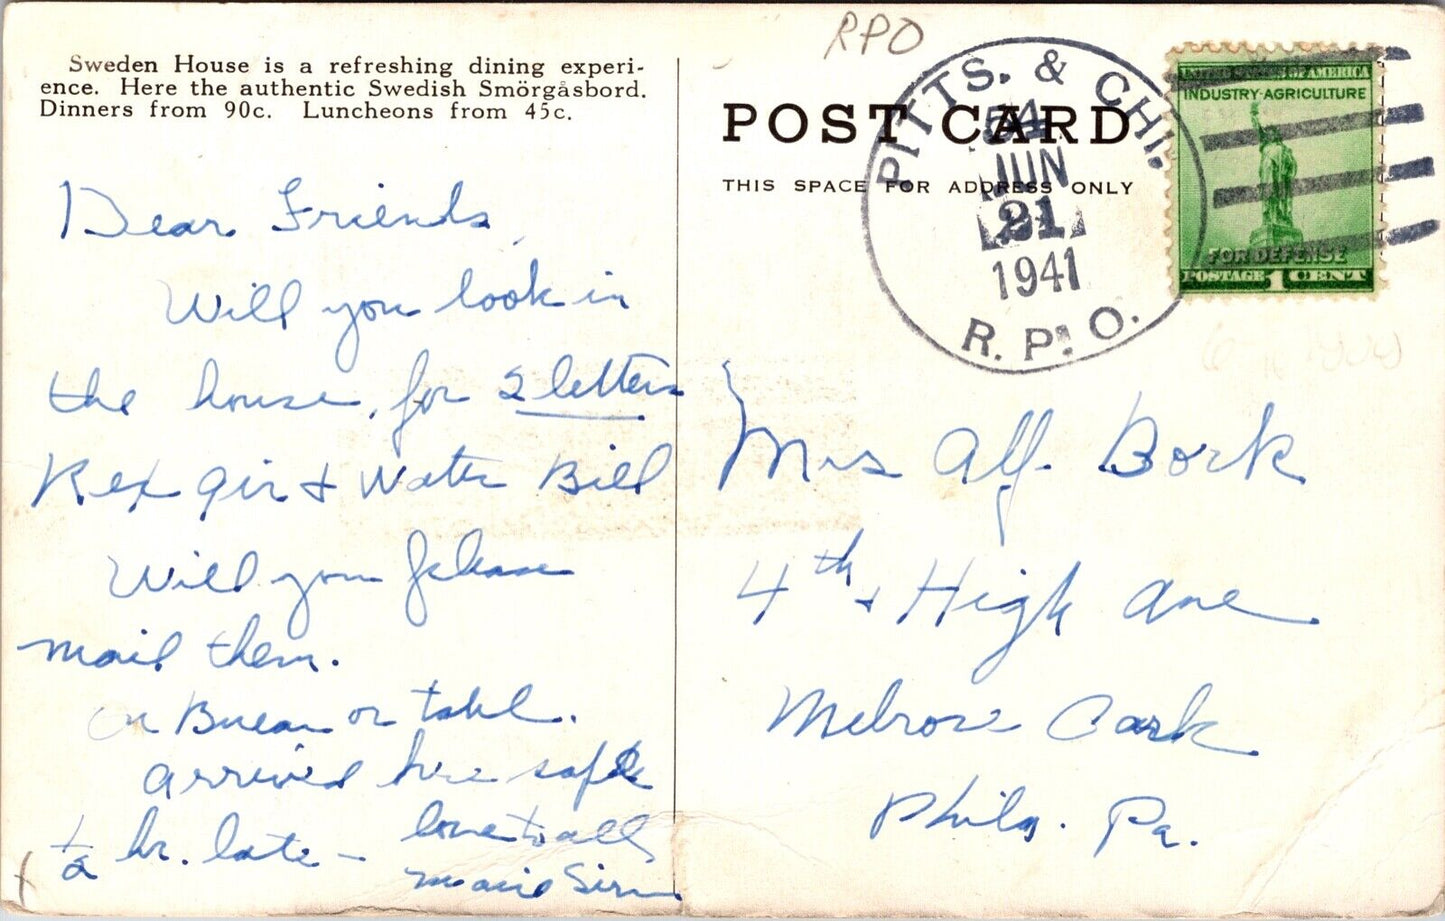 Sweden House is a refreshing dining experi-
ence. Here the authentic Swedish Smörgåsbord.
Dinners from 90c. Luncheons from 45c.
Dear Friends,
Will you look in
the house, for 2 letters
Rex Air & Water Bill
Will you please
mail them.
on Bureau or table.
arrived here safe
1/2 hr. late - love to all
Marie
RPO
POST CARD
THIS SPACE FOR ADDRESS ONLY
PITTS. & CHI.
54
JUN
21
1941
R. P. O.
UNITED STATES OF AMERICA
INDUSTRY-AGRICULTURE
FOR DEFENSE
POSTAGE 1 CENT
Mrs Alf. Bork
4th & High Ave
Melrose Park
Phila. Pa.